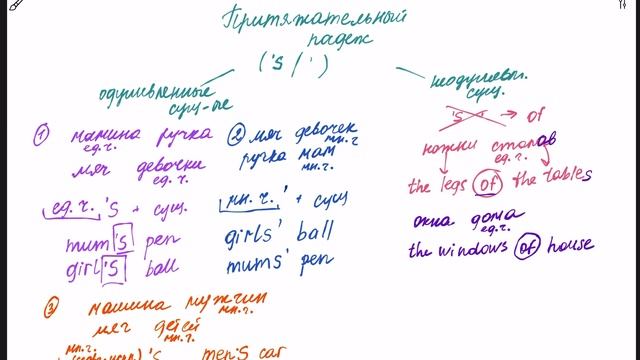 Притяжательный
падеж
('s / ')
одушевленные
сущ-ые
неодушевл.
сущ.
's → of
① мамина ручка
ед.ч.
мяч девочки
ед.ч.
ед.ч. 's + сущ.
mum's pen
girl's ball
② мяч девочек
мн.ч.
ручка мам
мн.ч.
мн.ч. ' + сущ
girls' ball
mums' pen
ножки столов
ед.ч.
the legs of the tables
окна дома
ед.ч.
the windows of house
③ машина мужчин
мн.ч.
мяч детей
мн.ч.
мн.ч.
's men's car